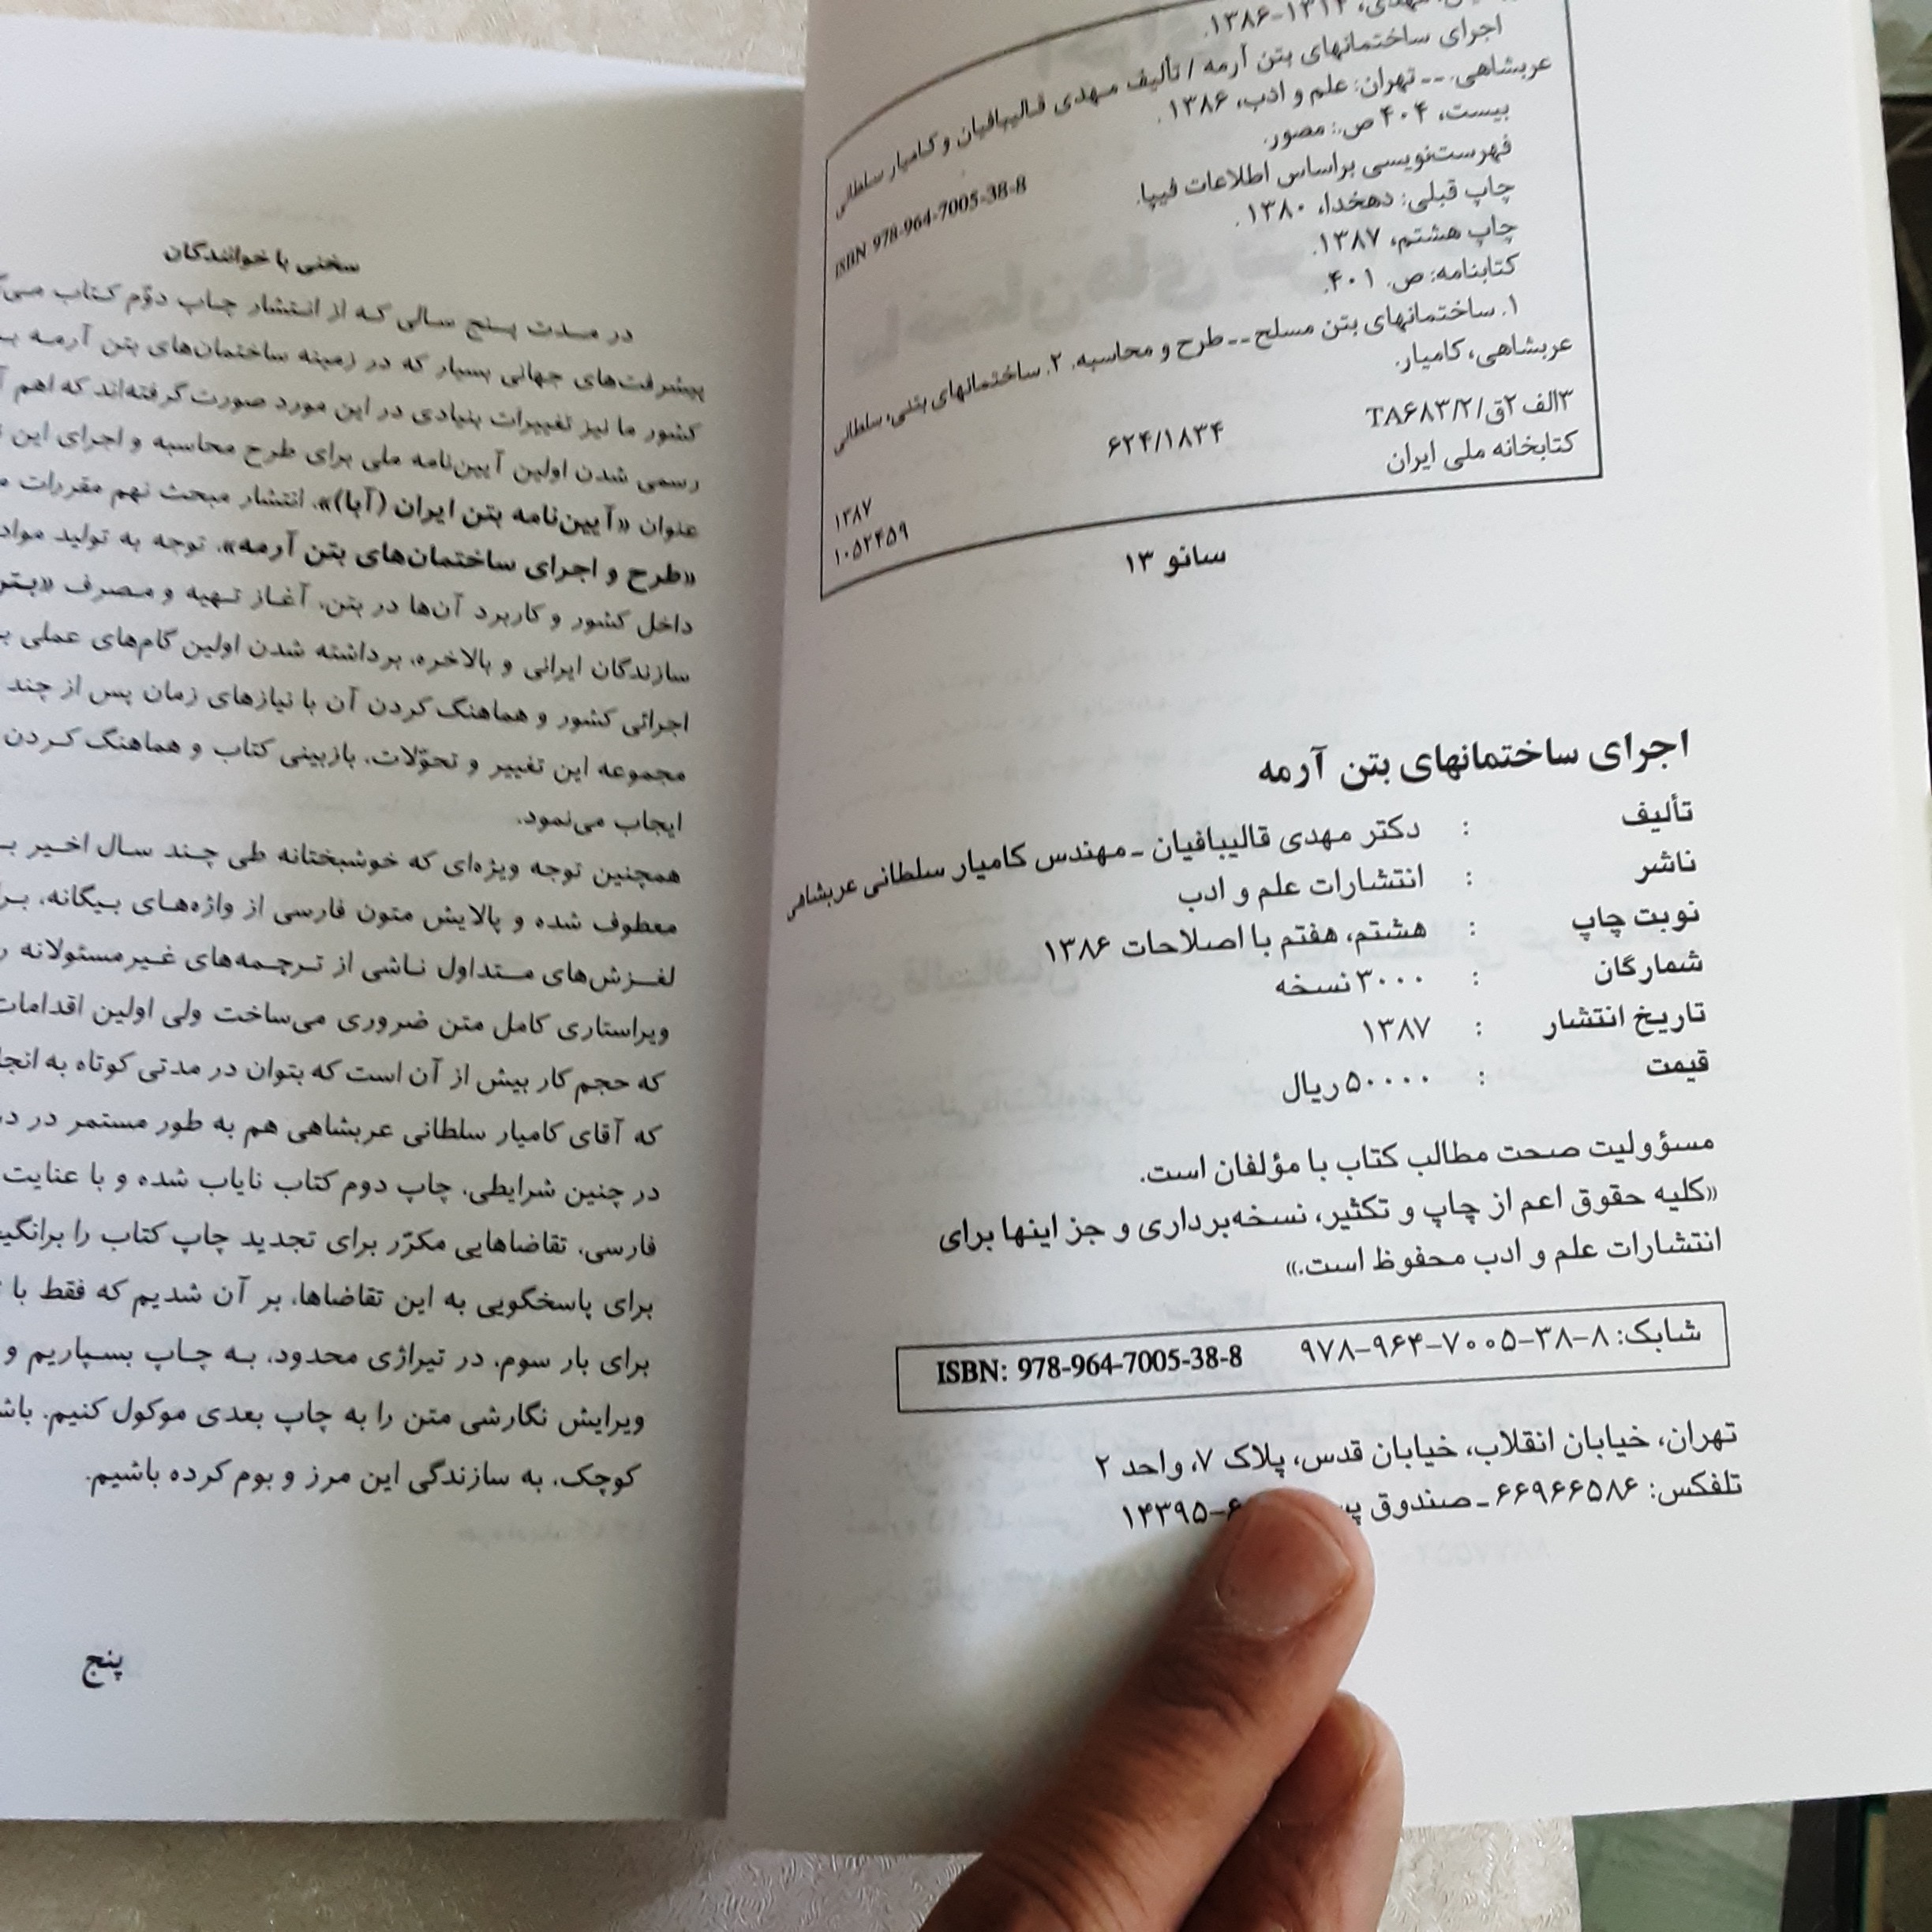 ۱۳۸۶-۱۳۱۴
اجرای ساختمانهای بتن آرمه / تألیف مهدی قالیبافیان و کامیار سلطانی
عربشاهی. -- تهران: علم و ادب، ۱۳۸۶.
بیست، ۴۰۴ ص.: مصور.
ISBN 978-964-7005-38-8
فهرست‌نویسی براساس اطلاعات فیپا.
چاپ قبلی: دهخدا، ۱۳۸۰.
چاپ هشتم، ۱۳۸۷.
کتابنامه: ص. ۴۰۱.
۱. ساختمانهای بتن مسلح -- طرح و محاسبه. ۲. ساختمانهای بتنی، سلطانی
عربشاهی، کامیار.
۳الف۲ق/TA۶۸۳/۲ ۶۲۴/۱۸۳۴ ۱۳۸۷
کتابخانه ملی ایران ۱۰۵۲۴۵۹
سانو ۱۳
اجرای ساختمانهای بتن آرمه
تألیف : دکتر مهدی قالیبافیان ـ مهندس کامیار سلطانی عربشاهی
ناشر : انتشارات علم و ادب
نوبت چاپ : هشتم، هفتم با اصلاحات ۱۳۸۶
شمارگان : ۳۰۰۰نسخه
تاریخ انتشار : ۱۳۸۷
قیمت : ۵۰۰۰۰ریال
مسؤولیت صحت مطالب کتاب با مؤلفان است.
«کلیه حقوق اعم از چاپ و تکثیر، نسخه‌برداری و جز اینها برای
انتشارات علم و ادب محفوظ است.»
شابک: ۸-۳۸-۷۰۰۵-۹۶۴-۹۷۸ ISBN: 978-964-7005-38-8
تهران، خیابان انقلاب، خیابان قدس، پلاک ۷، واحد ۲
تلفکس: ۶۶۹۶۶۵۸۶ ـ صندوق ۱۴۳۹۵-۶
سخنی با خوانندگان
در مدت پنج سالی که از انتشار چاپ دوّم کتاب
پیشرفت‌های جهانی بسیار که در زمینه ساختمان‌های بتن آرمه
کشور ما نیز تغییرات بنیادی در این مورد صورت گرفته‌اند که اهم
رسمی شدن اولین آیین‌نامه ملی برای طرح محاسبه و اجرای این
عنوان «آیین‌نامه بتن ایران (آبا)»، انتشار مبحث نهم مقررات
«طرح و اجرای ساختمان‌های بتن آرمه»، توجه به تولید مواد
داخل کشور و کاربرد آن‌ها در بتن، آغاز تهیه و مصرف «بتن
سازندگان ایرانی و بالاخره، برداشته شدن اولین گام‌های عملی
اجرائی کشور و هماهنگ کردن آن با نیازهای زمان پس از چند
مجموعه این تغییر و تحوّلات، بازبینی کتاب و هماهنگ کردن
ایجاب می‌نمود.
همچنین توجه ویژه‌ای که خوشبختانه طی چند سال اخیر
معطوف شده و پالایش متون فارسی از واژه‌های بیگانه،
لغزش‌های متداول ناشی از ترجمه‌های غیرمسئولانه
ویراستاری کامل متن ضروری می‌ساخت ولی اولین اقدامات
که حجم کار بیش از آن است که بتوان در مدتی کوتاه به
که آقای کامیار سلطانی عربشاهی هم به طور مستمر در
در چنین شرایطی، چاپ دوم کتاب نایاب شده و با عنایت
فارسی، تقاضاهایی مکرّر برای تجدید چاپ کتاب را
برای پاسخگویی به این تقاضاها، بر آن شدیم که فقط با
برای بار سوم، در تیراژی محدود، به چاپ بسپاریم و
ویرایش نگارشی متن را به چاپ بعدی موکول کنیم.
کوچک، به سازندگی این مرز و بوم کرده باشیم.
پنج